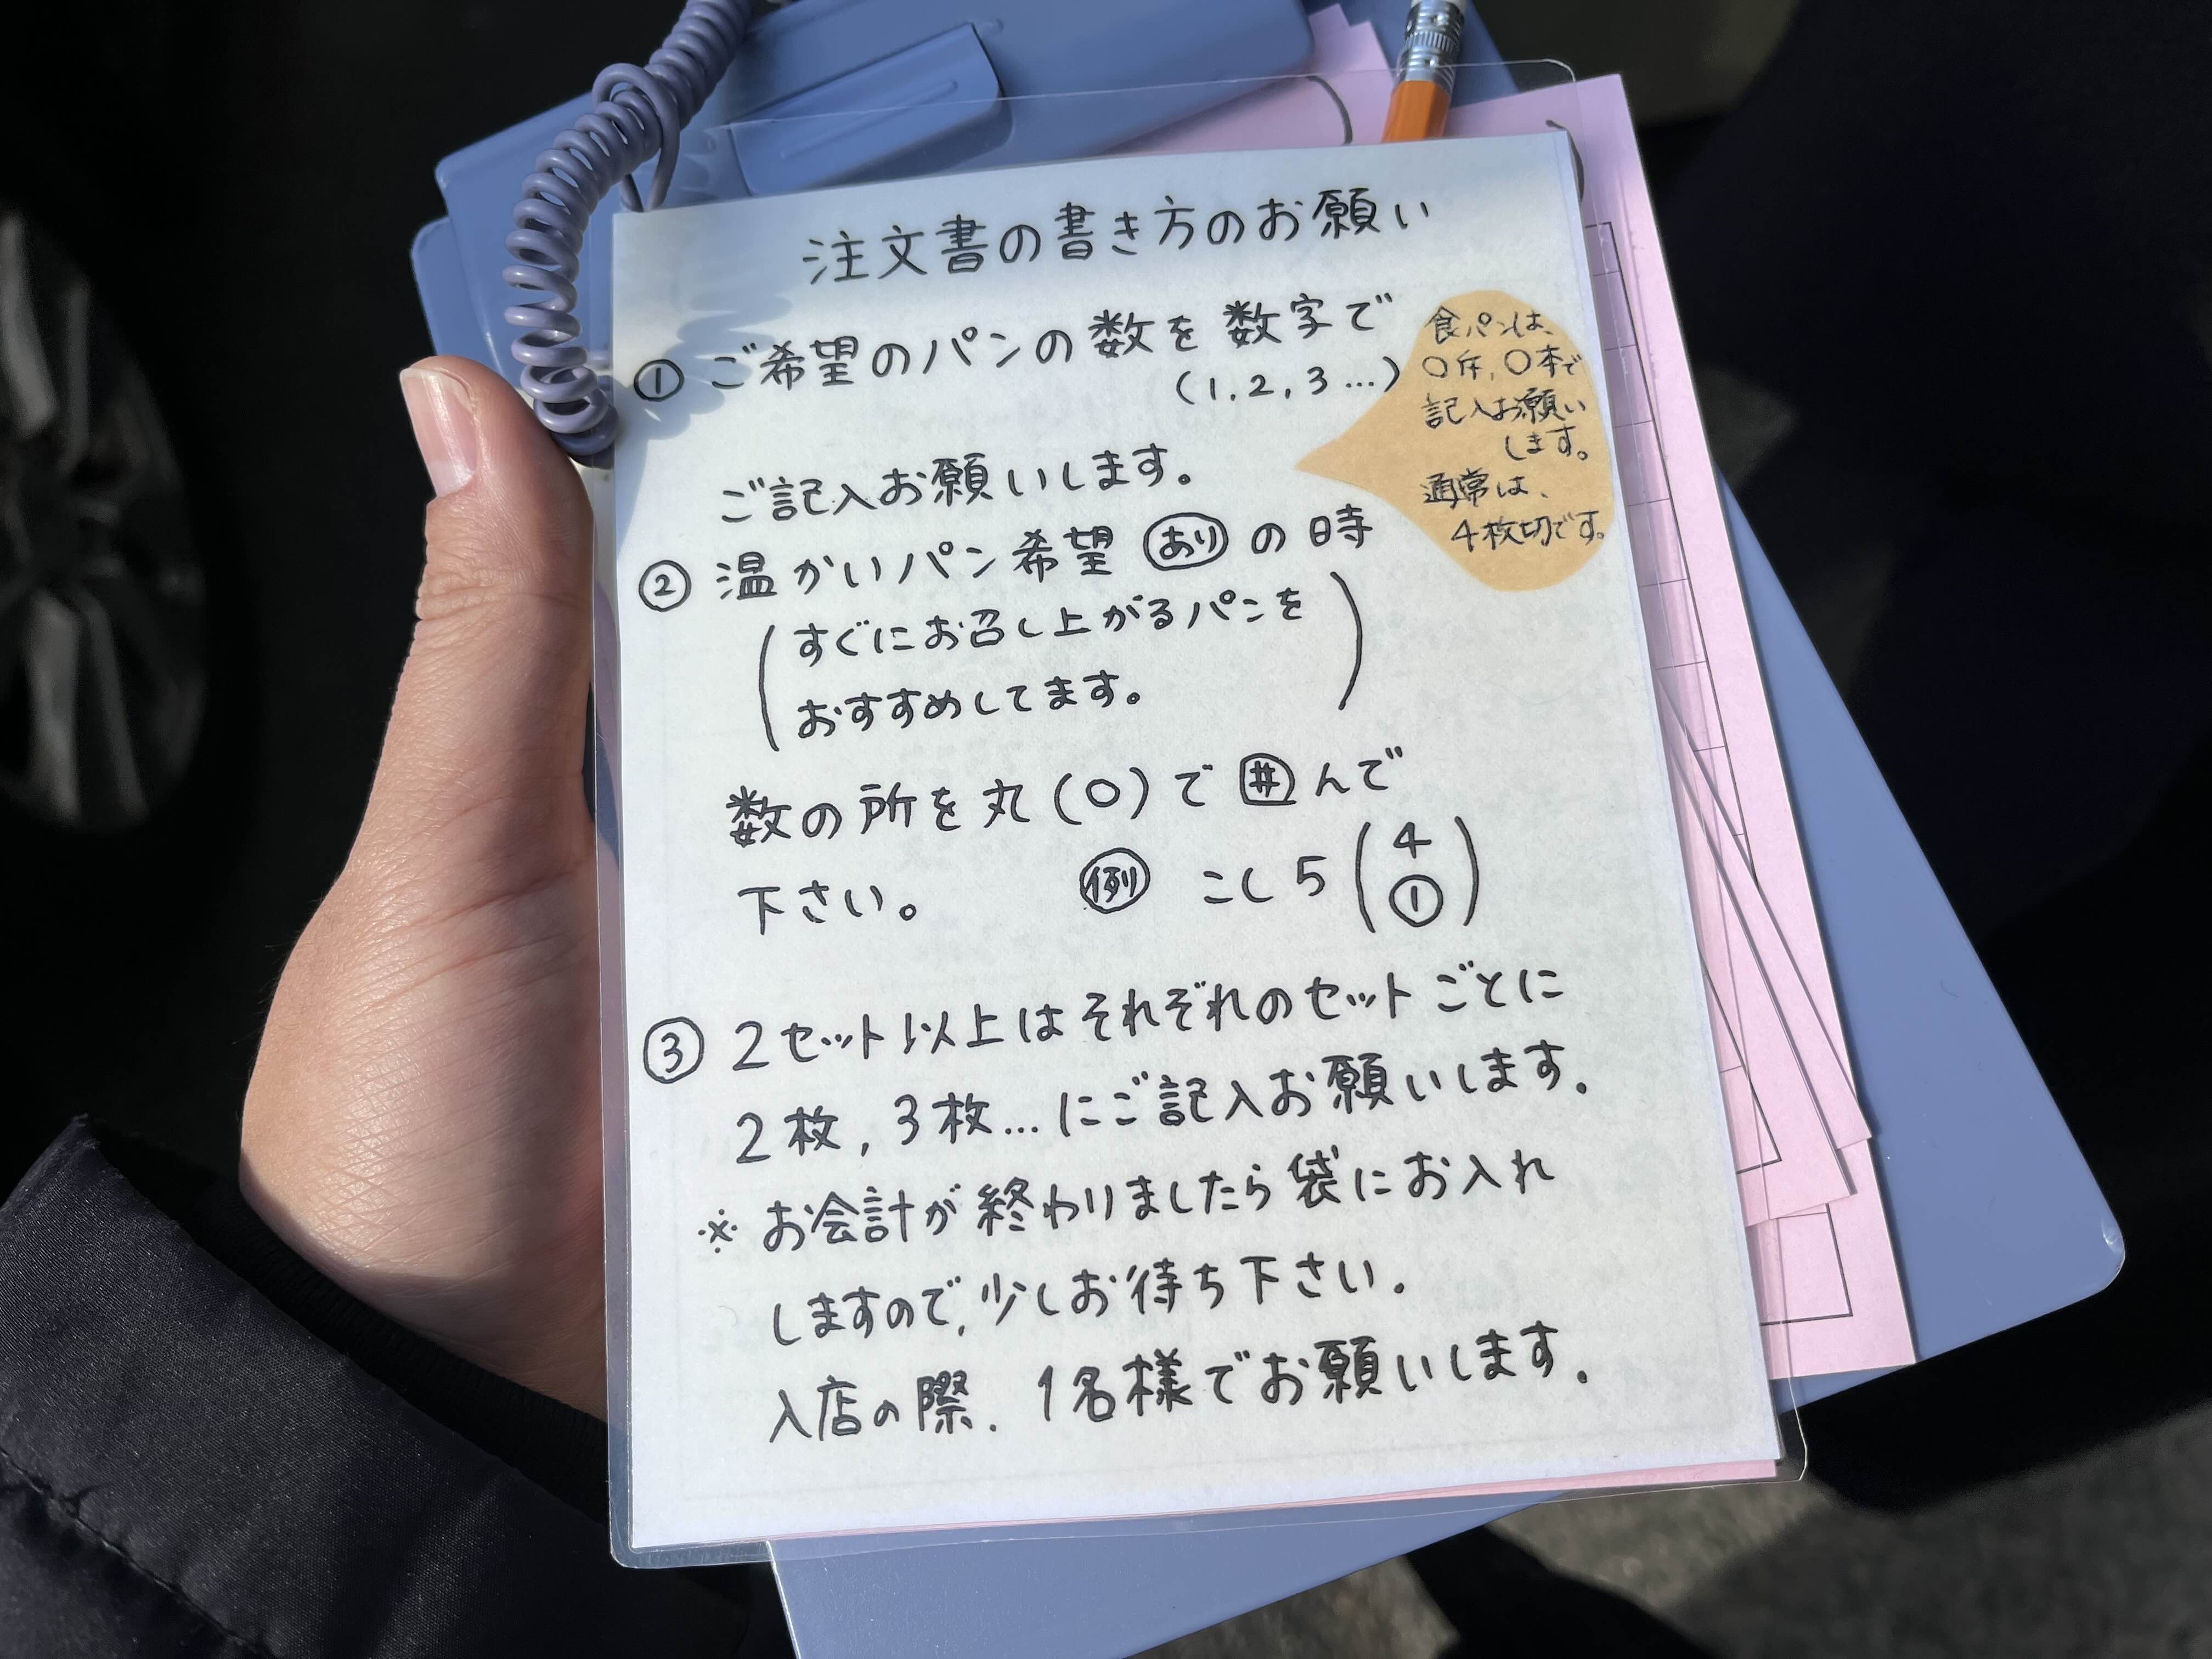 注文書の書き方のお願い
① ご希望のパンの数を数字で
(1,2,3…)
ご記入お願いします。
食パンは、
○斤,○本で
記入お願い
します。
通常は、
4枚切です。
② 温かいパン希望 あり の時
(すぐにお召し上がるパンを
おすすめしてます。)
数の所を丸(○)で囲んで
下さい。 例 こし5(4
①)
③ 2セット以上はそれぞれのセットごとに
2枚,3枚…にご記入お願いします.
※ お会計が終わりましたら袋にお入れ
しますので,少しお待ち下さい.
入店の際.1名様でお願いします.